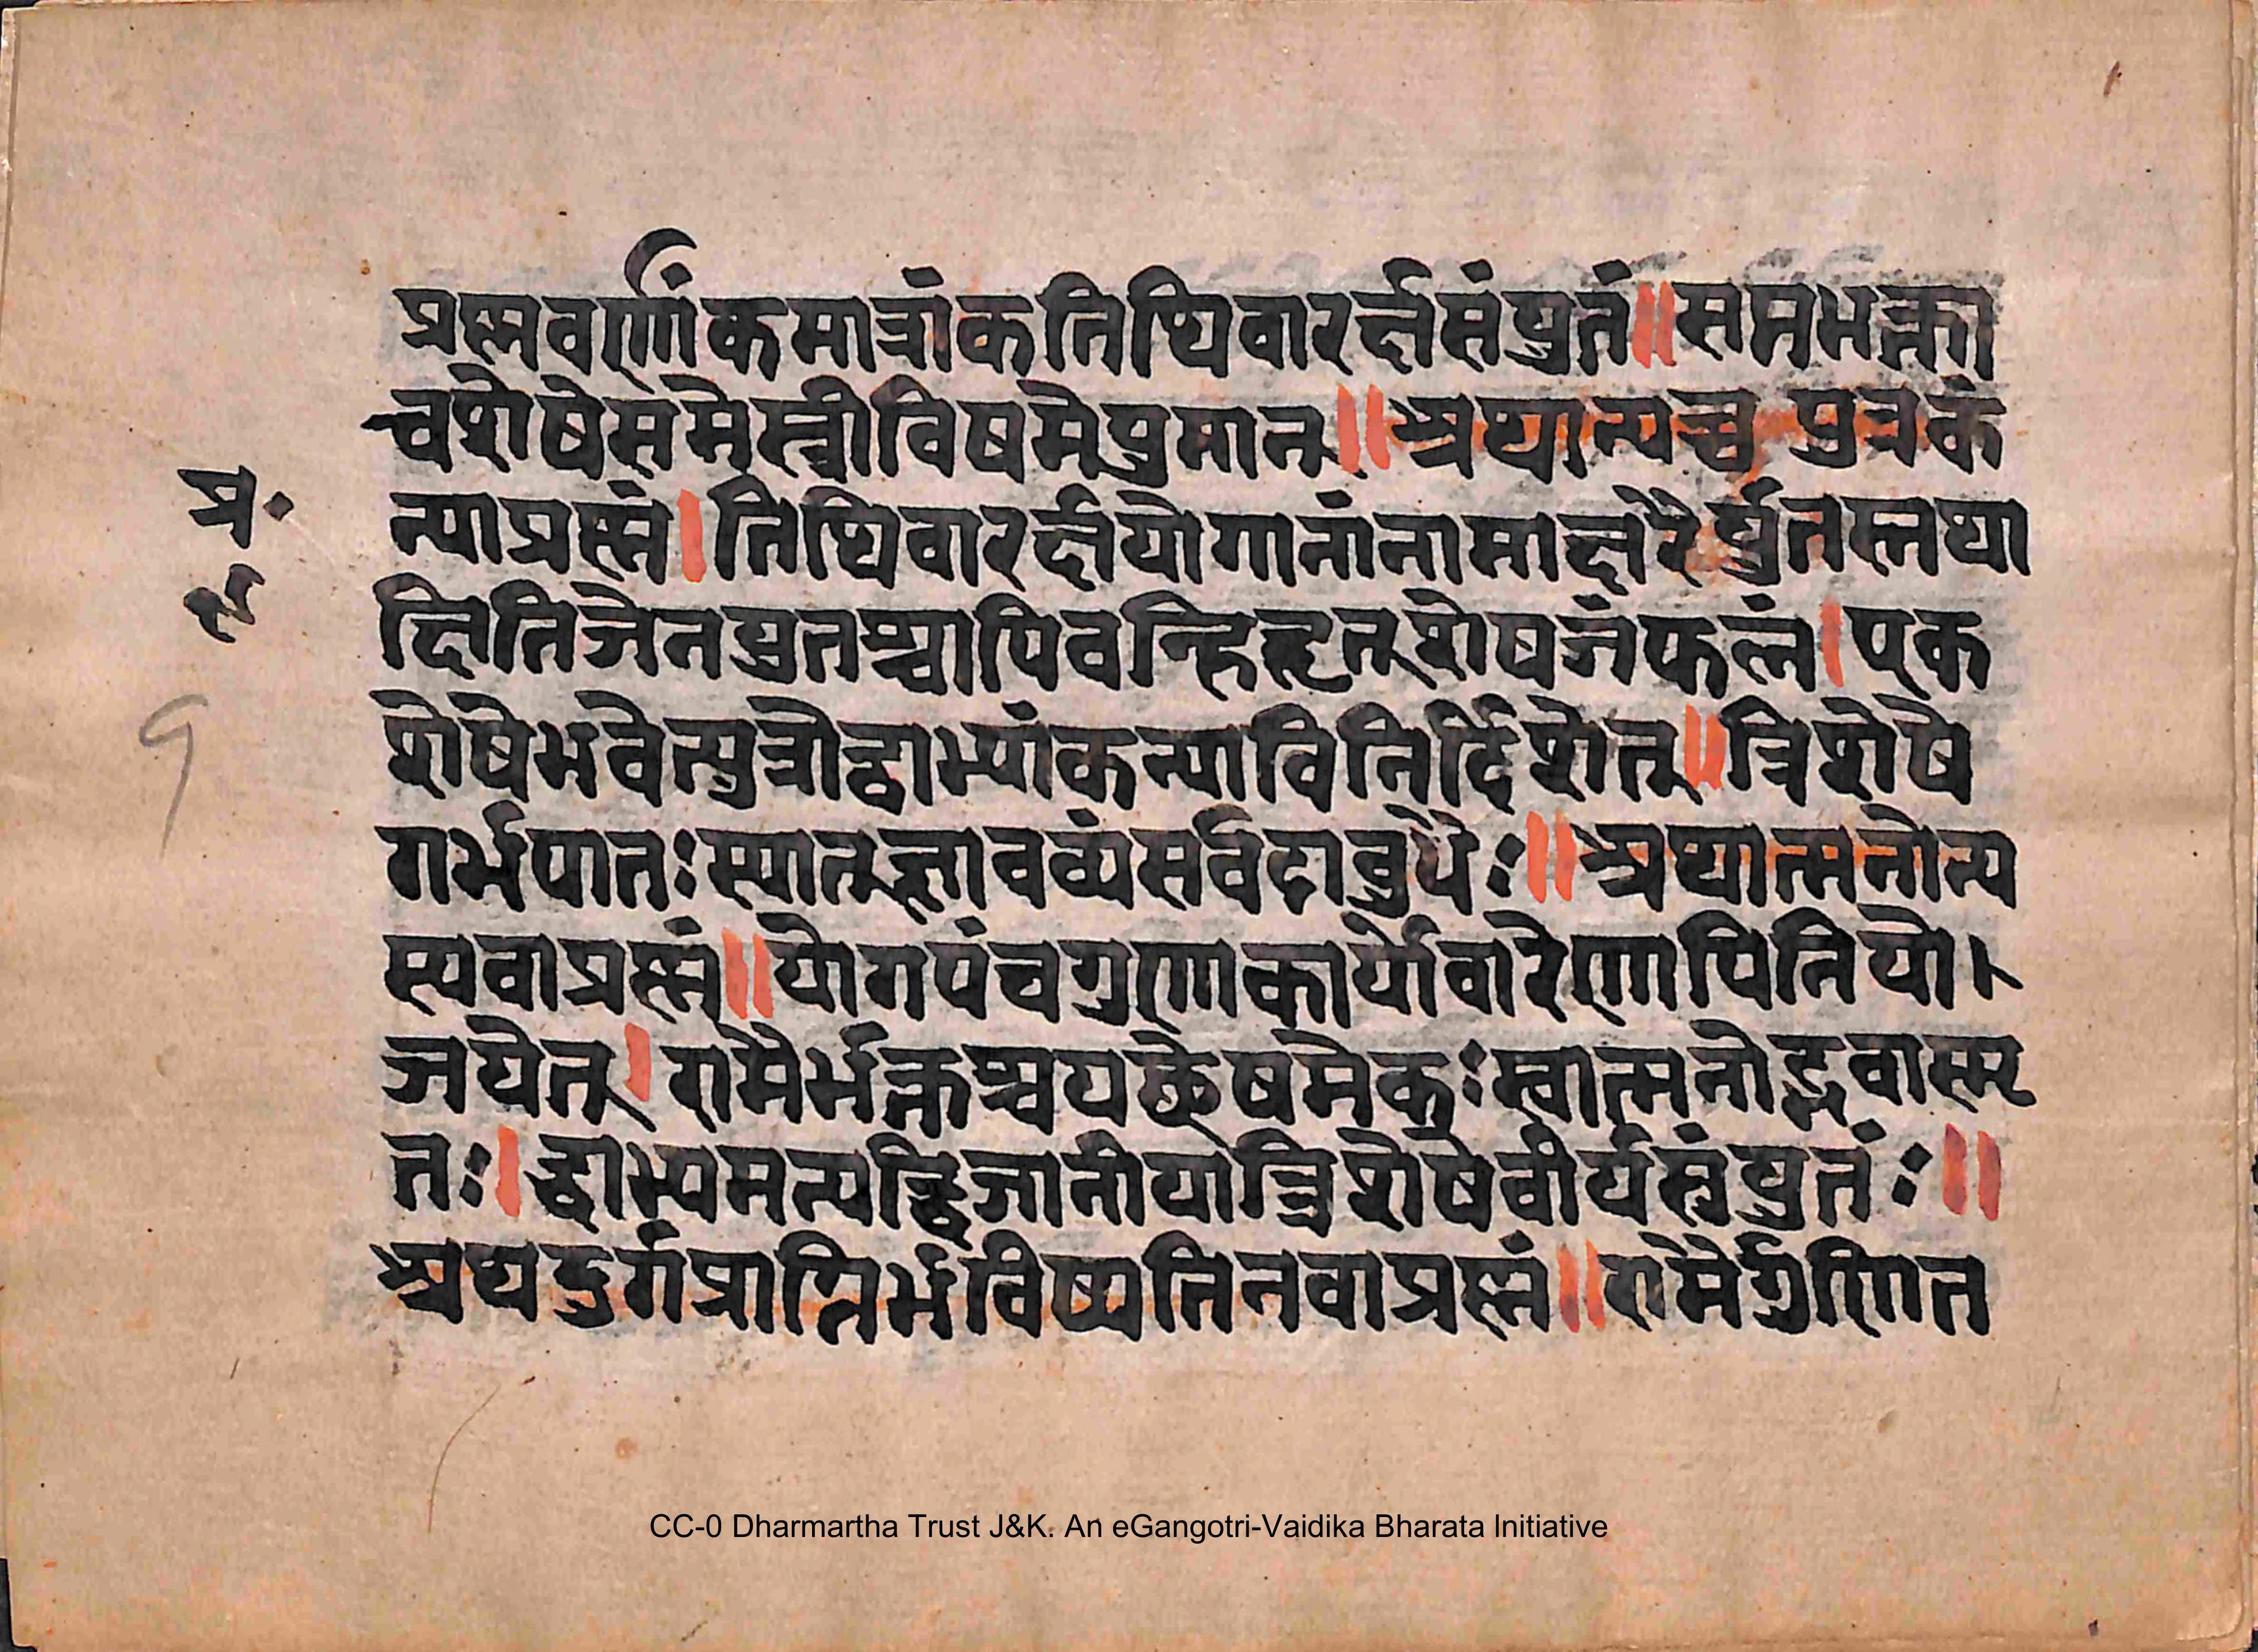 प्रश्नवर्णांकमात्रांकतिथिवारर्क्षसंयुतं॥सप्तभक्ता
चशेषेसमेस्त्रीविषमेपुमान्॥अथान्यच्च पुत्रकं
न्याप्रश्नं।तिथिवारर्क्षयोगानांनामाक्षरैर्युतस्तथा
प्र॰
क्षितिजेनयुतश्चापिवन्हिहृत्शेषजंफलं।एक
१
शेषेभवेत्पुत्रोद्वाभ्यांकन्याविनिर्दिशेत्॥त्रिशेषे
गर्भपातःस्यात्ज्ञावव्यंसर्वदाबुधैः॥अथात्मनोन्य
स्यवाप्रश्नं॥योगपंचगुणकार्योवारेणापिनियो।
जयेत्।रामैर्भक्तश्चयच्छेषमेकःस्वात्मनोद्भवास्मृ
तः।द्वाभ्यमन्यद्विजानीयात्रिशेषेवीर्यस्त्रंयुतंः॥
अथदुर्गप्राप्तिर्भविष्यतिनवाप्रश्नं॥रामैर्गुणित
CC-0 Dharmartha Trust J&K. An eGangotri-Vaidika Bharata Initiative